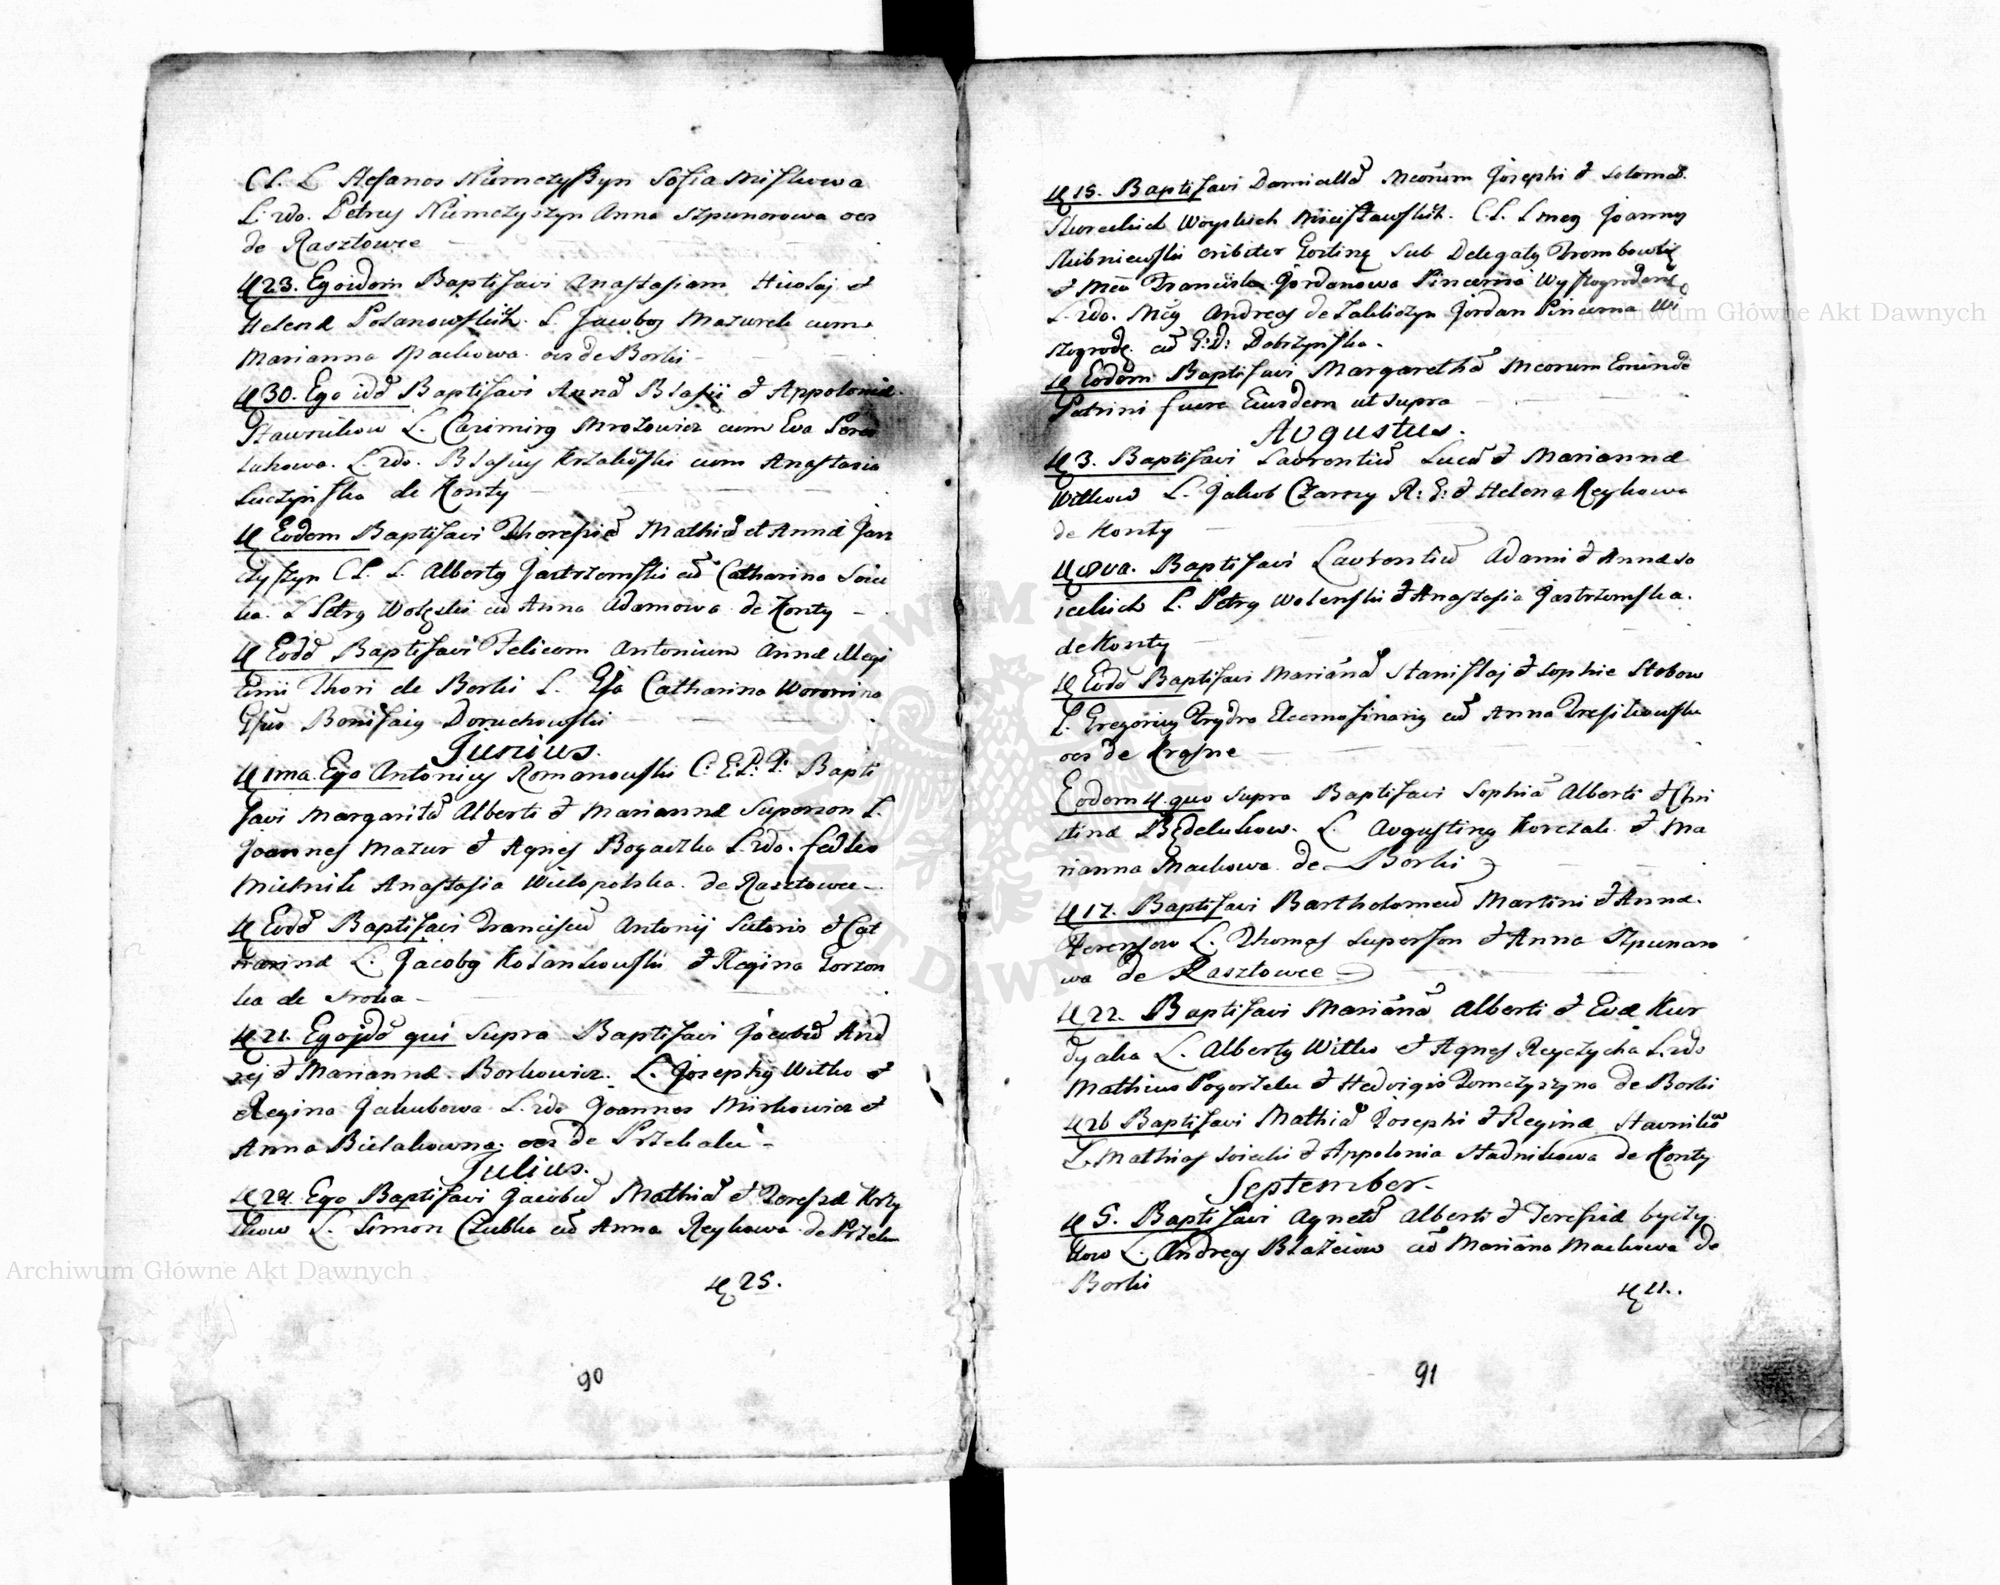 Cl. L Stefanos Niemczyszyn Sofia Miskowa
L. 2do. Petrus Niemczyszyn Anna Szpunorowa oes
de Rasztowce
D 23. Egoidem Baptisavi Anastasiam Nicolaj et
Helenæ Polanowskich. L. Jacobus Mazurek cum
Marianna Mackowa oes de Borki
D 30. Ego idē Baptisavi Annā Blasii et Appoloniæ
Stawnikow L. Casimirg Mrozowicz cum Eva
L. 2do. Blasius Krzakowski cum Anastasia
Luczynska de Konty
D Eodem Baptisavi Theresiā Mathiæ et Annæ Jan
czyszyn Cl. L. Albertg Jastrzemski cū Catharina Soiec
ka. L Petrg Wolęski cū Anna Adamowa de Konty
D Eodē Baptisavi Felicem Antonium Annæ illegi
timi Thori de Borki L. Gsa Catharina Woronina
Gsus Bonifacig Doruchowski
Junius.
D 1ma. Ego Antonius Romanowski C: E: L: P: Bapti
savi Margaritā Alberti et Mariannæ Superson L.
Joannes Mazur et Agnes Bogaczka L. 2do. Fedko
Mielnik Anastasia Wielopolska de Rasztowce
D Eodē Baptisavi Franciscū Antonij Sutoris et Cat
harinæ L. Jacobg Kożankowski et Regina Gorzon
ka de Sroka
D 21. Egojdē qui supra Baptisavi Jacobū And
rej et Mariannæ Borkowicz. L. Josephg Witko et
Regina Jakubowa L. 2do Joannes Mirkowicz et
Anna Bielakowna oes de Przekalec
Julius.
D 24. Ego Baptisavi Jacobū Mathiæ et Teresiæ Krzy
skow L. Simon Czubka cū Anna Reykowa de Przeka
D 25.
90
D 15. Baptisavi Domicellā Mcorum Josephi et Solomeæ
Skureckich Woyskich Mścisławskich. C.L. Lmcg Joanneg
Skibniewski Sub Delegatg Trombowlę
et Mca Franciska Jordanowa Pincerna Wyszogrodens
L. 2do. Mcg Andreas de Zakliczyn Jordan Pincerna Wi
szogrodę. cū G: D: Dobrzynska.
D Eodem Baptisavi Margarethā Mcorum Eorunde
Patrini fuere Eiusdem ut supra
Augustus.
D 3. Baptisavi Laurentiū Lucæ et Mariannæ
Witkow L. Jakob Czarny R: G: et Helena Reykowa
de Konty
D 8va. Baptisavi Laurentiū Adami et Annæ so
ieckich L. Petrg Wolenski et Anastasia Jastrzemska.
de Konty
D Eodē Baptisavi Mariannā Stanislaj et Sophie Stobow
L. Gregorius Prydro Eleemosinarig cū Anna
oes de Krasne
Eodem D quo supra Baptisavi Sophiā Alberti et Chri
stinæ Będelukow. L. Augusting Korczak et Ma
rianna Mackowa de Borki
D 17. Baptisavi Bartholomeū Martini et Annæ.
Ferensow L. Thomas Superson et Anna Szpunaro
wa de Rasztowce
D 22. Baptisavi Mariannā Alberti et Evæ Kur
dyaka L. Albertg Witko et Agnes Reyczycha L. 2do
Mathias Pogorzelec et Hedvigis Tomczyszyna de Borki
D 26 Baptisavi Mathiā Josephi et Reginæ Stawnikō
L. Mathias Soiecki et Appolonia Stadnikowa de Konty
September.
D 5. Baptisavi Agnetē Alberti et Teresiæ byczy
kow L. Andreas Błażeiow cū Marianna Mackowa de
Borki
D 11.
91
Archiwum Główne Akt Dawnych
Archiwum Główne Akt Dawnych